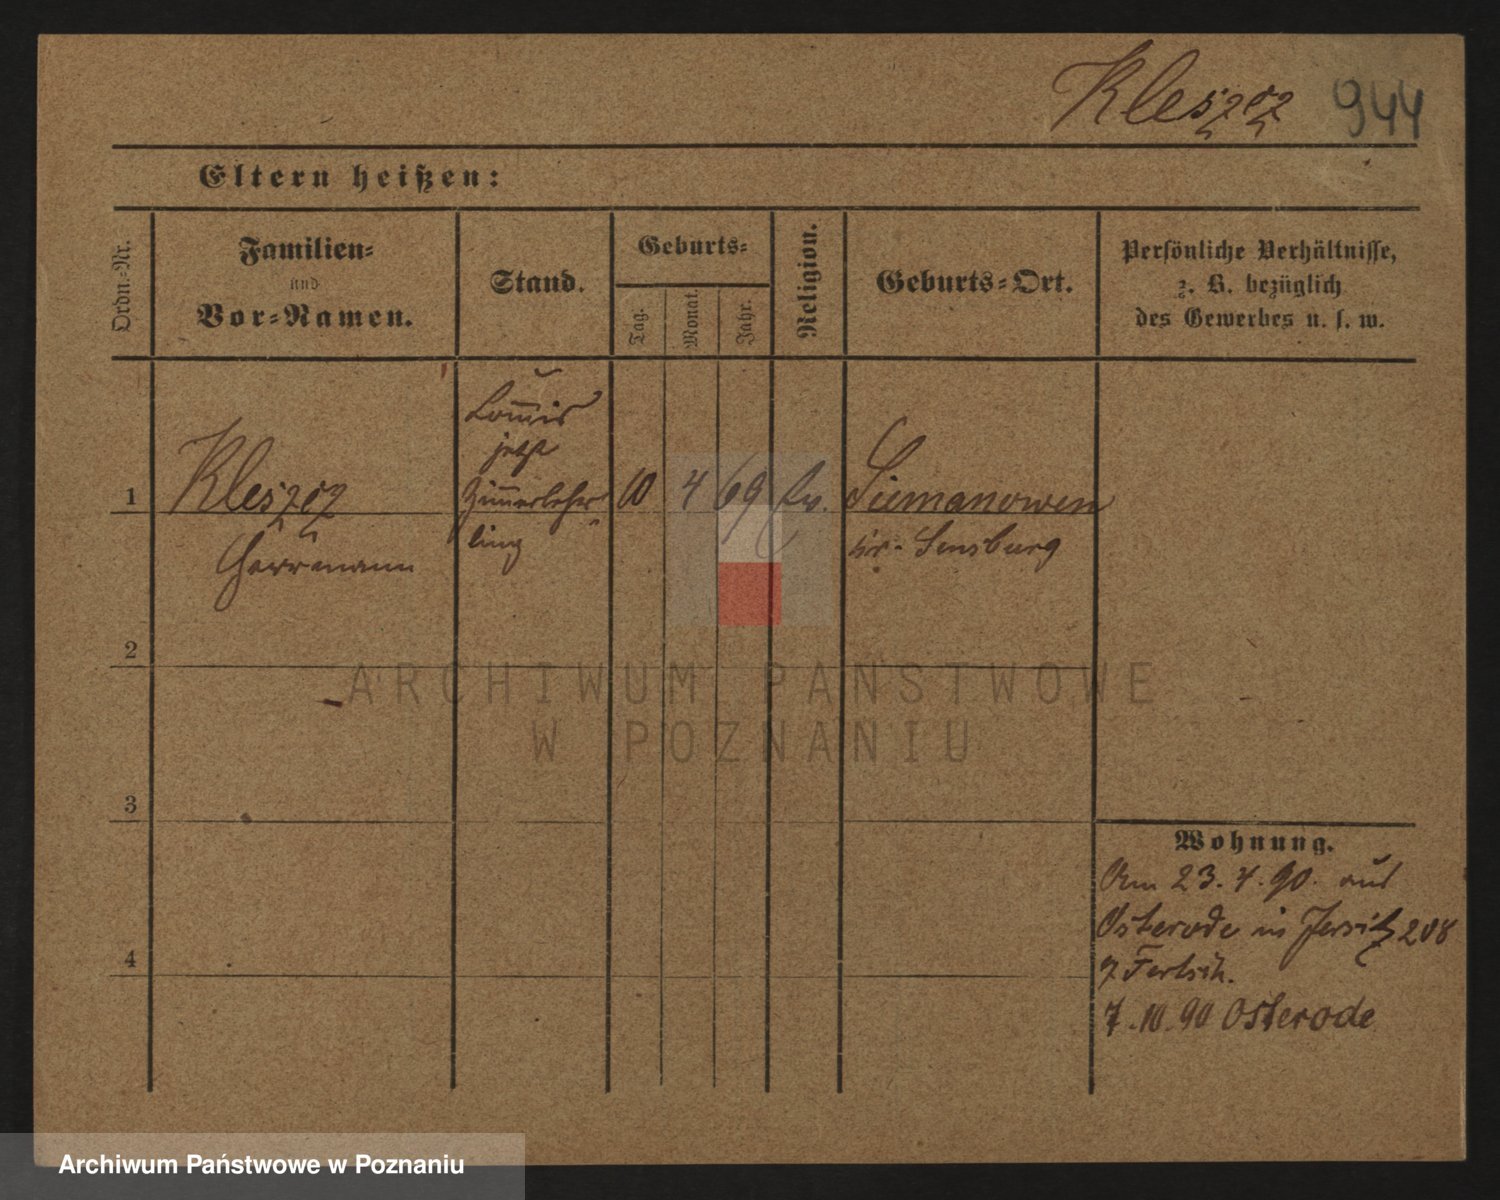 Kleszcz 944
Eltern heißen:
Ordn.-Nr.
Familien-
und
Vor-Namen.
Stand.
Geburts-
Tag.
Monat.
Jahr.
Religion.
Geburts-Ort.
Persönliche Verhältnisse,
z. B. bezüglich
des Gewerbes u. s. w.
1
Kleszcz
Herrmann
Kom̅is
jetzt
Zim̅erlehr
ling
10
4
69
Ev.
Siemanowen
Kr. Sensburg
2
3
4
Wohnung.
Am 23. 4. 90. aus
Osterode in Jersitz 208
7. 10. 90 Osterode
ARCHIWUM PAŃSTWOWE
W POZNANIU
Archiwum Państwowe w Poznaniu